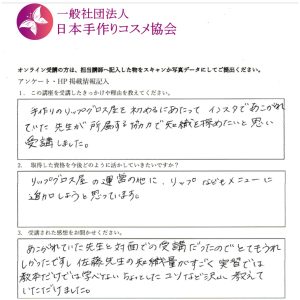 一般社団法人
日本手作りコスメ協会
オンライン受講の方は、担当講師へ記入した物をスキャンか写真データにしてご提出ください。
アンケート・HP掲載情報記入
1. この講座を受講したきっかけや理由を教えてください。
手作りのリップグロス屋を初めるにあたって インスタであこがれ
ていた先生が所属する協力で知識を深めたいと思い
受講しました。
2. 取得した資格を今後どのように活かしていきたいですか?
リップグロス屋の運営の他に、リップなどもメニューに
追加しようと思っています。
3. 受講された感想をお聞かせください。
あこがれていた先生と対面での受講だったのでとてもうれ
しかったですし 佐藤先生の知識量がすごく 実習では
教本だけでは学べない ちょっとしたコツなど沢山教えて
いただけました。